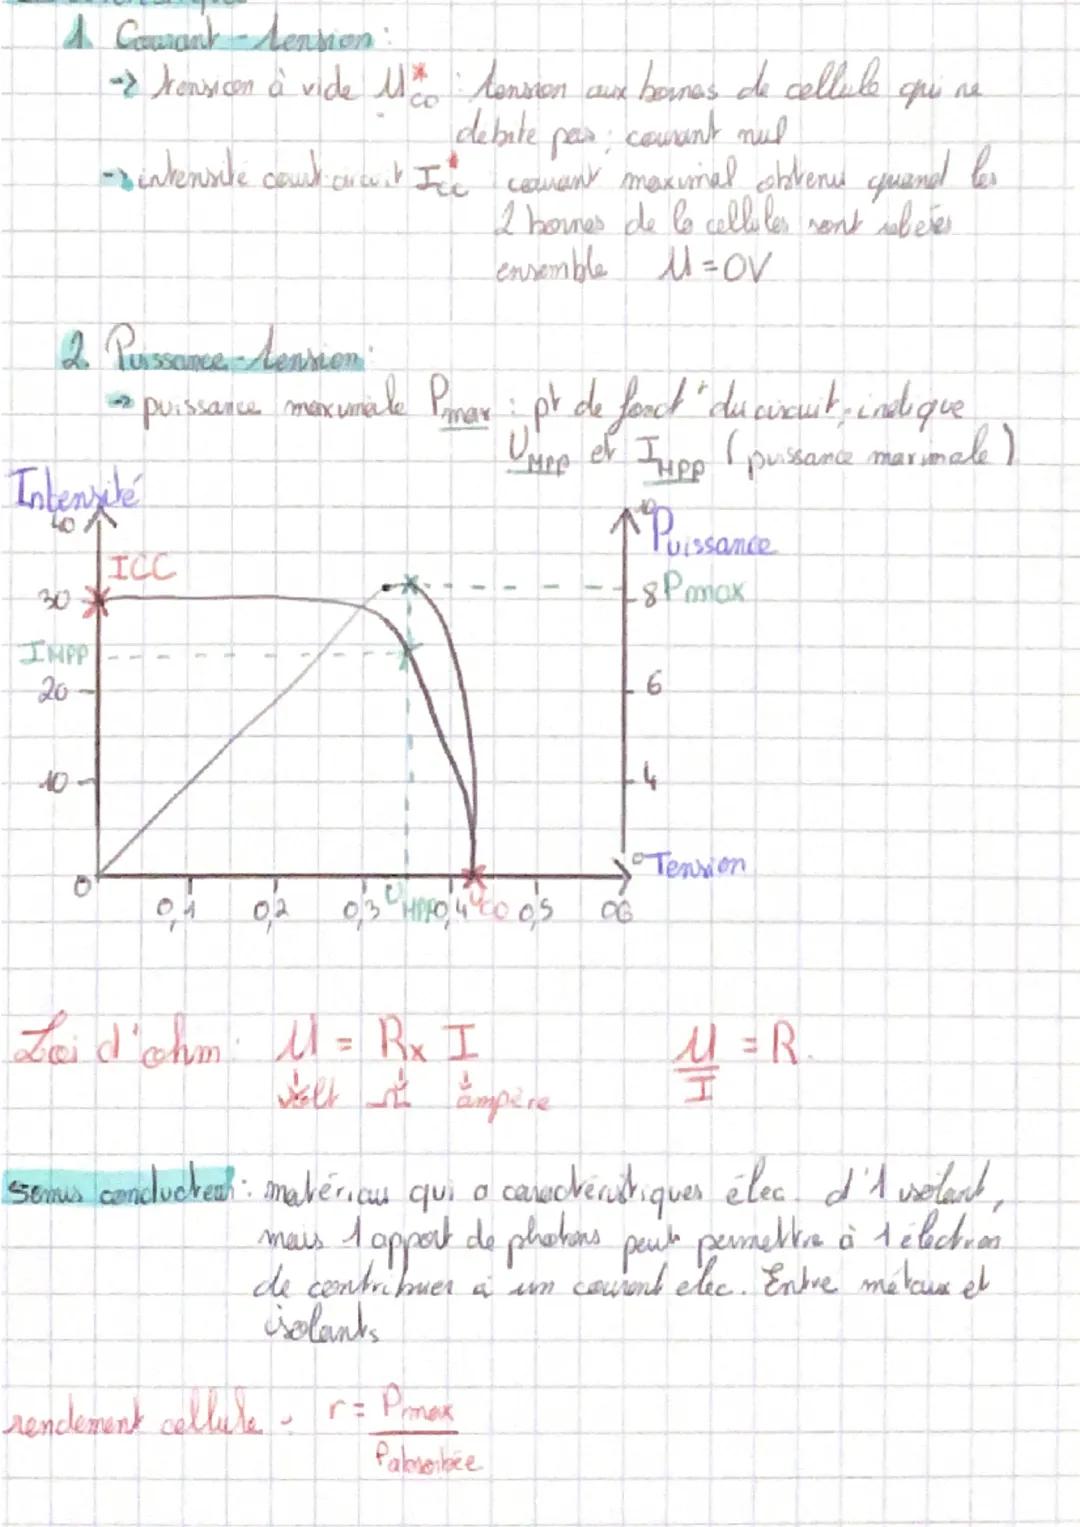 1. Courant-tension:
-> tension à vide Uco* : tension aux bornes de cellule qui ne
debite pas; courant nul
-> intensité court-circuit Icc* courant maximal obtenu quand les
2 bornes de la cellules sont reliées
ensemble U=0V
2. Puissance-tension:
-> puissance maximale Pmax : pt de fonct° du circuit, indique
UMPP et IMPP (puissance maximale)
Intensité
40
ICC
30
IMPP
20
10
0
10
Puissance
8 Pmax
6
4
0
Tension
0,1 0,2 0,3 UMPP 0,4 UCO 0,5 06
Loi d'ohm: U = R x I
U/I = R.
Volt Ω ampère
semis conducteur: matériau qui a caractéristiques élec. d'1 isolant,
mais 1 apport de photons peut permettre à 1 électron
de contribuer à un courant elec. Entre métaux et
isolants
rendement cellule: r = Pmax
Pabsorbée